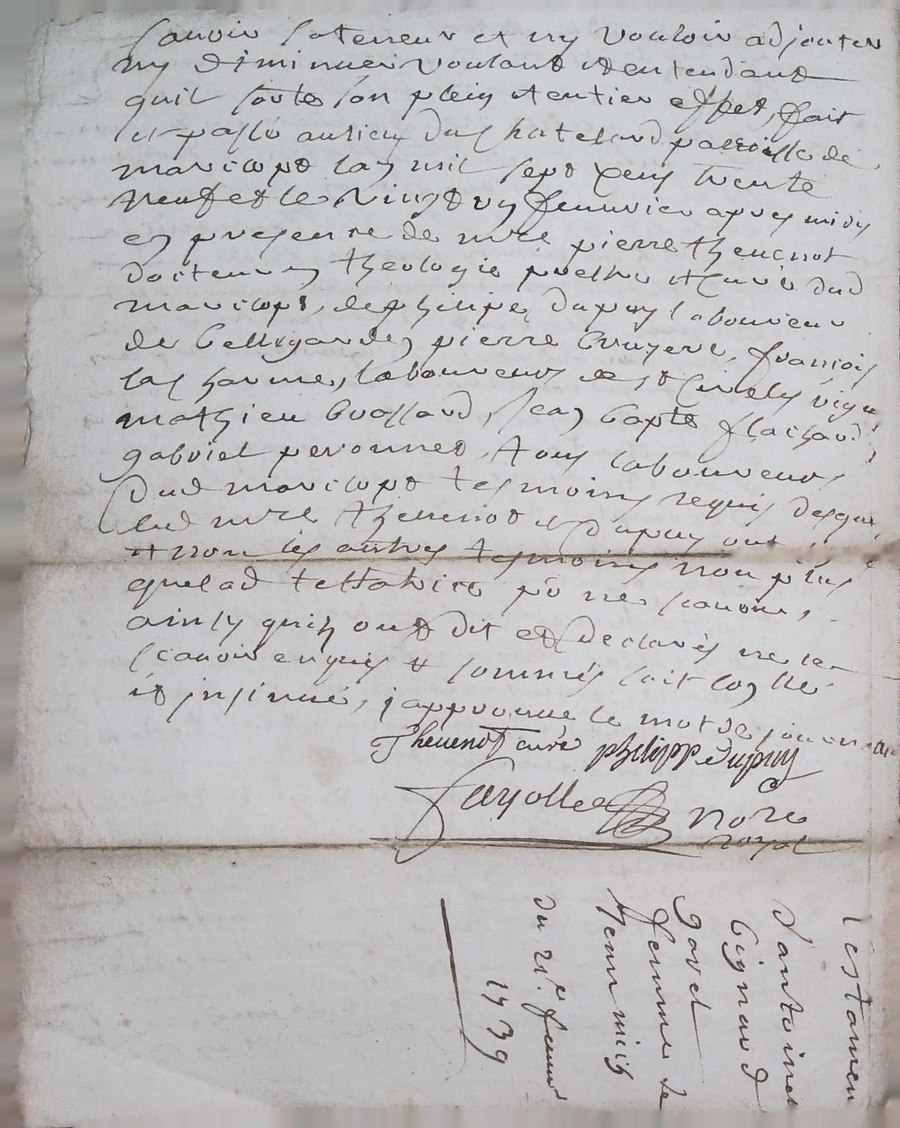 scavoir lateneur et ny vouloir adjouter
ny diminuer voulant et entendant
quil sorte son plein et entier effet, fait
et passé au lieu du Chatelard parroisse de
marclopt lan mil sept cens trente
neuf et le vingt un feuvrier apres midy
en presence de mre pierre theuenot
docteur en theologie prestre et curé dud
marclopt, de philipe dupuy laboureur
de bellegarde, pierre bruyere, francois
las laboureurs de st
mathieu jean bapte flachard
gabriel peronnet, tous laboureurs
dud marclopt tesmoins requis desquels
led mre theuenot et dupuy ont
et non les autres tesmoins non plus
que lad testatrice po ne scauoir,
ainsy quils ont dit et declarés ne le
scauoir enquis et sommés soit conllé
et insinué, japprouue le mot de
Theuenot curé philippe dupuy
fayolle nore
royal
testamen
dantoinet
bignard
femme de
du 21e feuur
1739